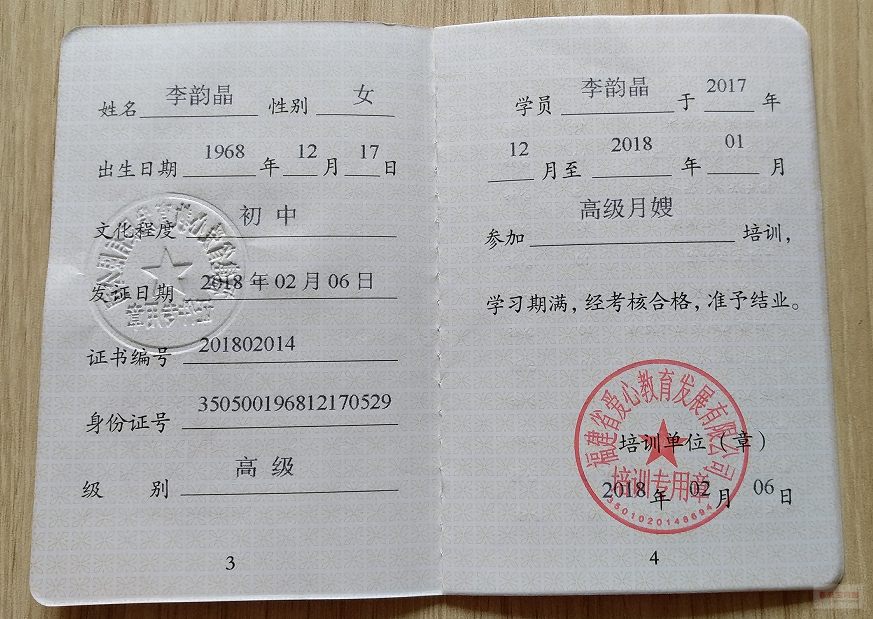 姓名 李韵晶 性别 女
出生日期 1968 年 12 月 17 日
文化程度 初中
发证日期 2018年02月06日
证书编号 201802014
身份证号 350500196812170529
级别 高级
3
学员 李韵晶 于 2017 年
12 月至 2018 年 01 月
参加 高级月嫂 培训，
学习期满，经考核合格，准予结业。
福建省爱心教育发展有限公司
培训单位（章）
培训专用章
2018 年 02 月 06 日
4